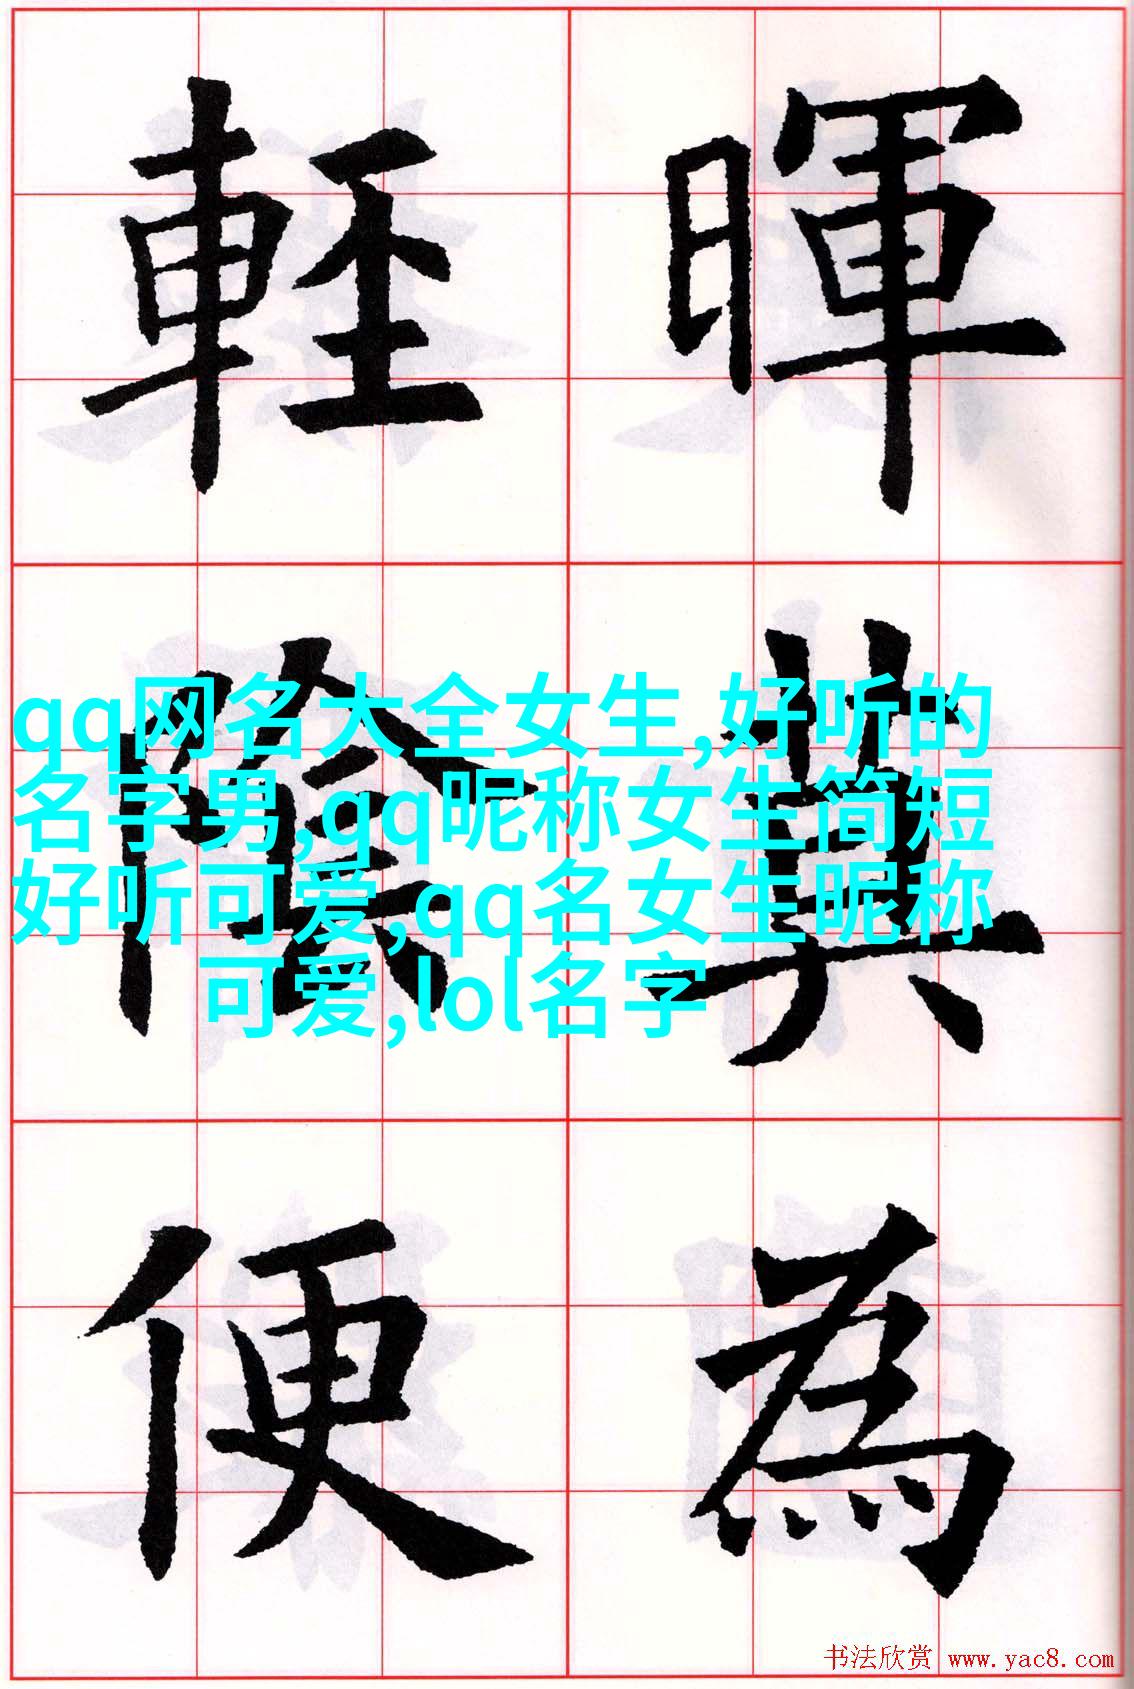 暉莫為
輕陰便
qq网名大全女生,好听的
名字男,qq昵称女生简短
好听可爱,qq名女生昵称
可爱,lol名字
书法欣赏 www.yac8.com